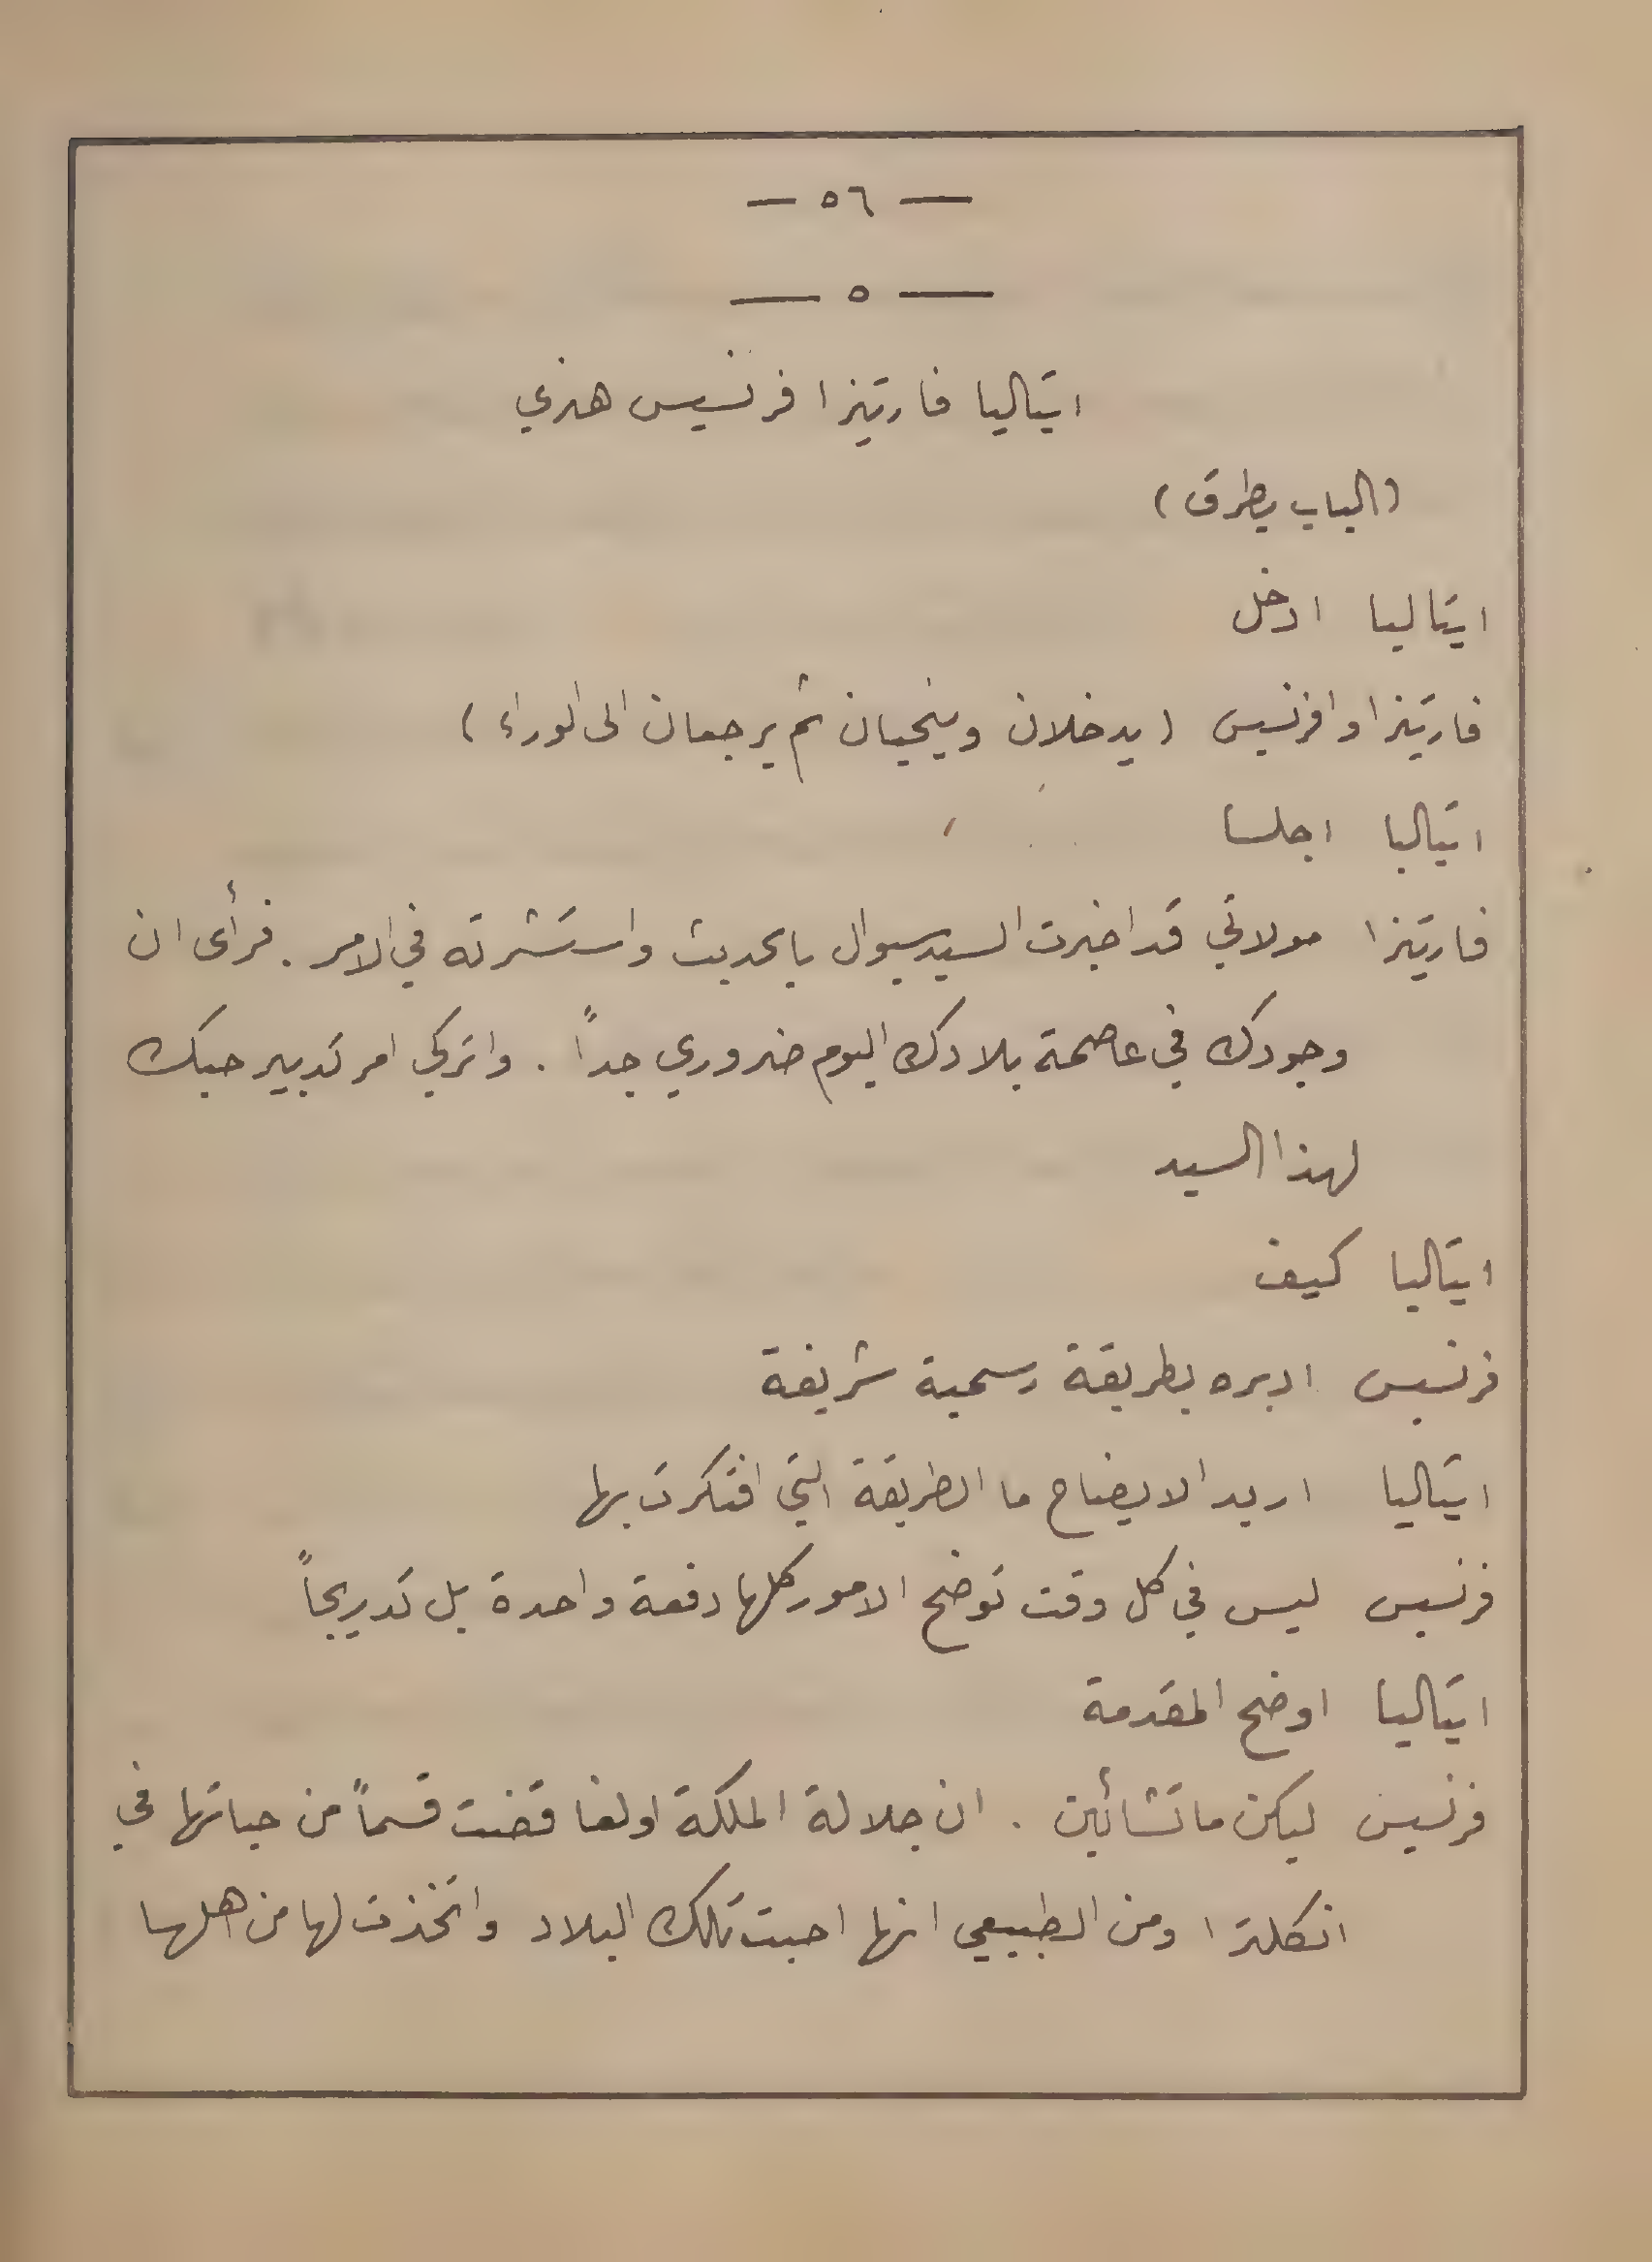 — ٥٦ —
— ٥ —
ايتاليا فارتيزا فرنسيس هنري
(الباب يطرق)
ايتاليا ادخل
فارتيزا وافرنسيس (يدخلان وينحيان ثم يرجعان الى الوراء)
ايتاليا اجلسا
فارتيزا مولاتي قد اخبرت السيد سيوال بالحديث واستشرته في الامر . فرأى ان
وجودك في عاصمة بلادك اليوم ضروري جداً . واتركي امر تدبير حبك
لهذا السيد
ايتاليا كيف
فرنسيس ادبره بطريقة رسمية شريفة
ايتاليا اريد الايضاح ما الطريقة التي افتكرت بها
فرنسيس ليس في كل وقت توضح الامور كلها دفعة واحدة بل تدريجاً
ايتاليا اوضح المقدمة
فرنسيس ليكن ما تشائين . ان جلالة الملكة اولغا قضت قسماً من حياتها في
انكلترا ومن الطبيعي انها احبت تلك البلاد واتخذت لها من اهلها